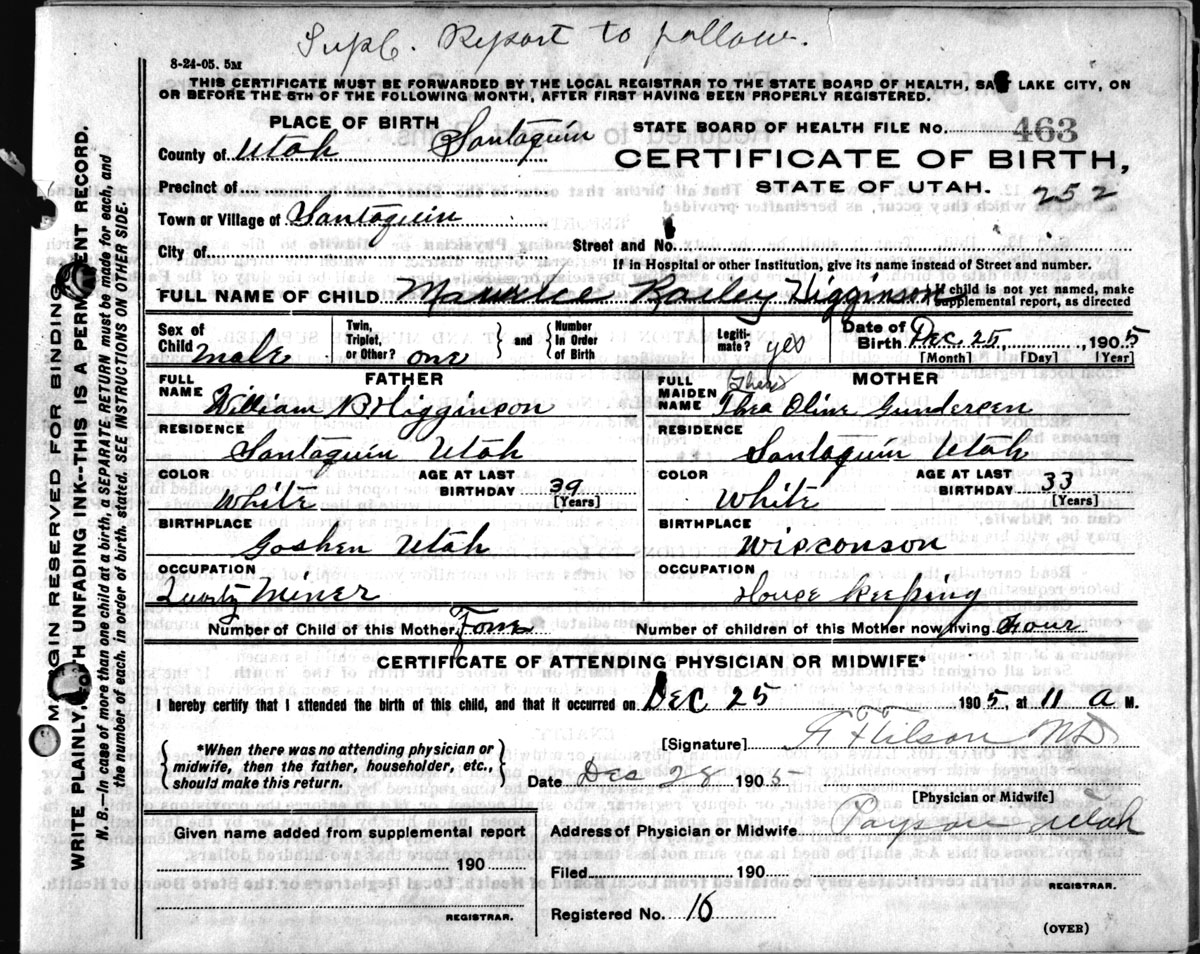 Supl. Report to follow.
8-24-05. 5M
THIS CERTIFICATE MUST BE FORWARDED BY THE LOCAL REGISTRAR TO THE STATE BOARD OF HEALTH, SALT LAKE CITY, ON
OR BEFORE THE 5TH OF THE FOLLOWING MONTH, AFTER FIRST HAVING BEEN PROPERLY REGISTERED.
PLACE OF BIRTH
STATE BOARD OF HEALTH FILE NO. 463
County of Utah Santaquin
CERTIFICATE OF BIRTH,
STATE OF UTAH. 252
Precinct of
Town or Village of Santaquin
Street and No.
City of
If in Hospital or other Institution, give its name instead of Street and number.
FULL NAME OF CHILD Maurice Railey Higginson
If child is not yet named, make
supplemental report, as directed
Sex of Child male
Twin, Triplet, or Other? one
and
Number In Order of Birth
Legiti-mate? yes
Date of Birth Dec. 25, 1905
[Month] [Day] [Year]
FATHER
FULL NAME William B Higginson
RESIDENCE
Santaquin Utah
COLOR
White
AGE AT LAST BIRTHDAY 39 [Years]
BIRTHPLACE
Goshen Utah
OCCUPATION
Quartz Miner
MOTHER
FULL MAIDEN NAME Thea Oline Gundersen
RESIDENCE
Santaquin Utah
COLOR
White
AGE AT LAST BIRTHDAY 33 [Years]
BIRTHPLACE
Wisconson
OCCUPATION
House Keeping
Number of Child of this Mother Four
Number of children of this Mother now living Four
CERTIFICATE OF ATTENDING PHYSICIAN OR MIDWIFE*
I hereby certify that I attended the birth of this child, and that it occurred on Dec 25 1905, at 11 a M.
[Signature] MD
*When there was no attending physician or
midwife, then the father, householder, etc.,
should make this return.
Date Dec 28 1905
[Physician or Midwife]
Given name added from supplemental report
190
REGISTRAR.
Address of Physician or Midwife Payson Utah
Filed 190
REGISTRAR.
Registered No. 16
(OVER)
MARGIN RESERVED FOR BINDING
WRITE PLAINLY, WITH UNFADING INK--THIS IS A PERMANENT RECORD.
N. B.--In case of more than one child at a birth, a SEPARATE RETURN must be made for each, and
the number of each, in order of birth, stated. SEE INSTRUCTIONS ON OTHER SIDE.